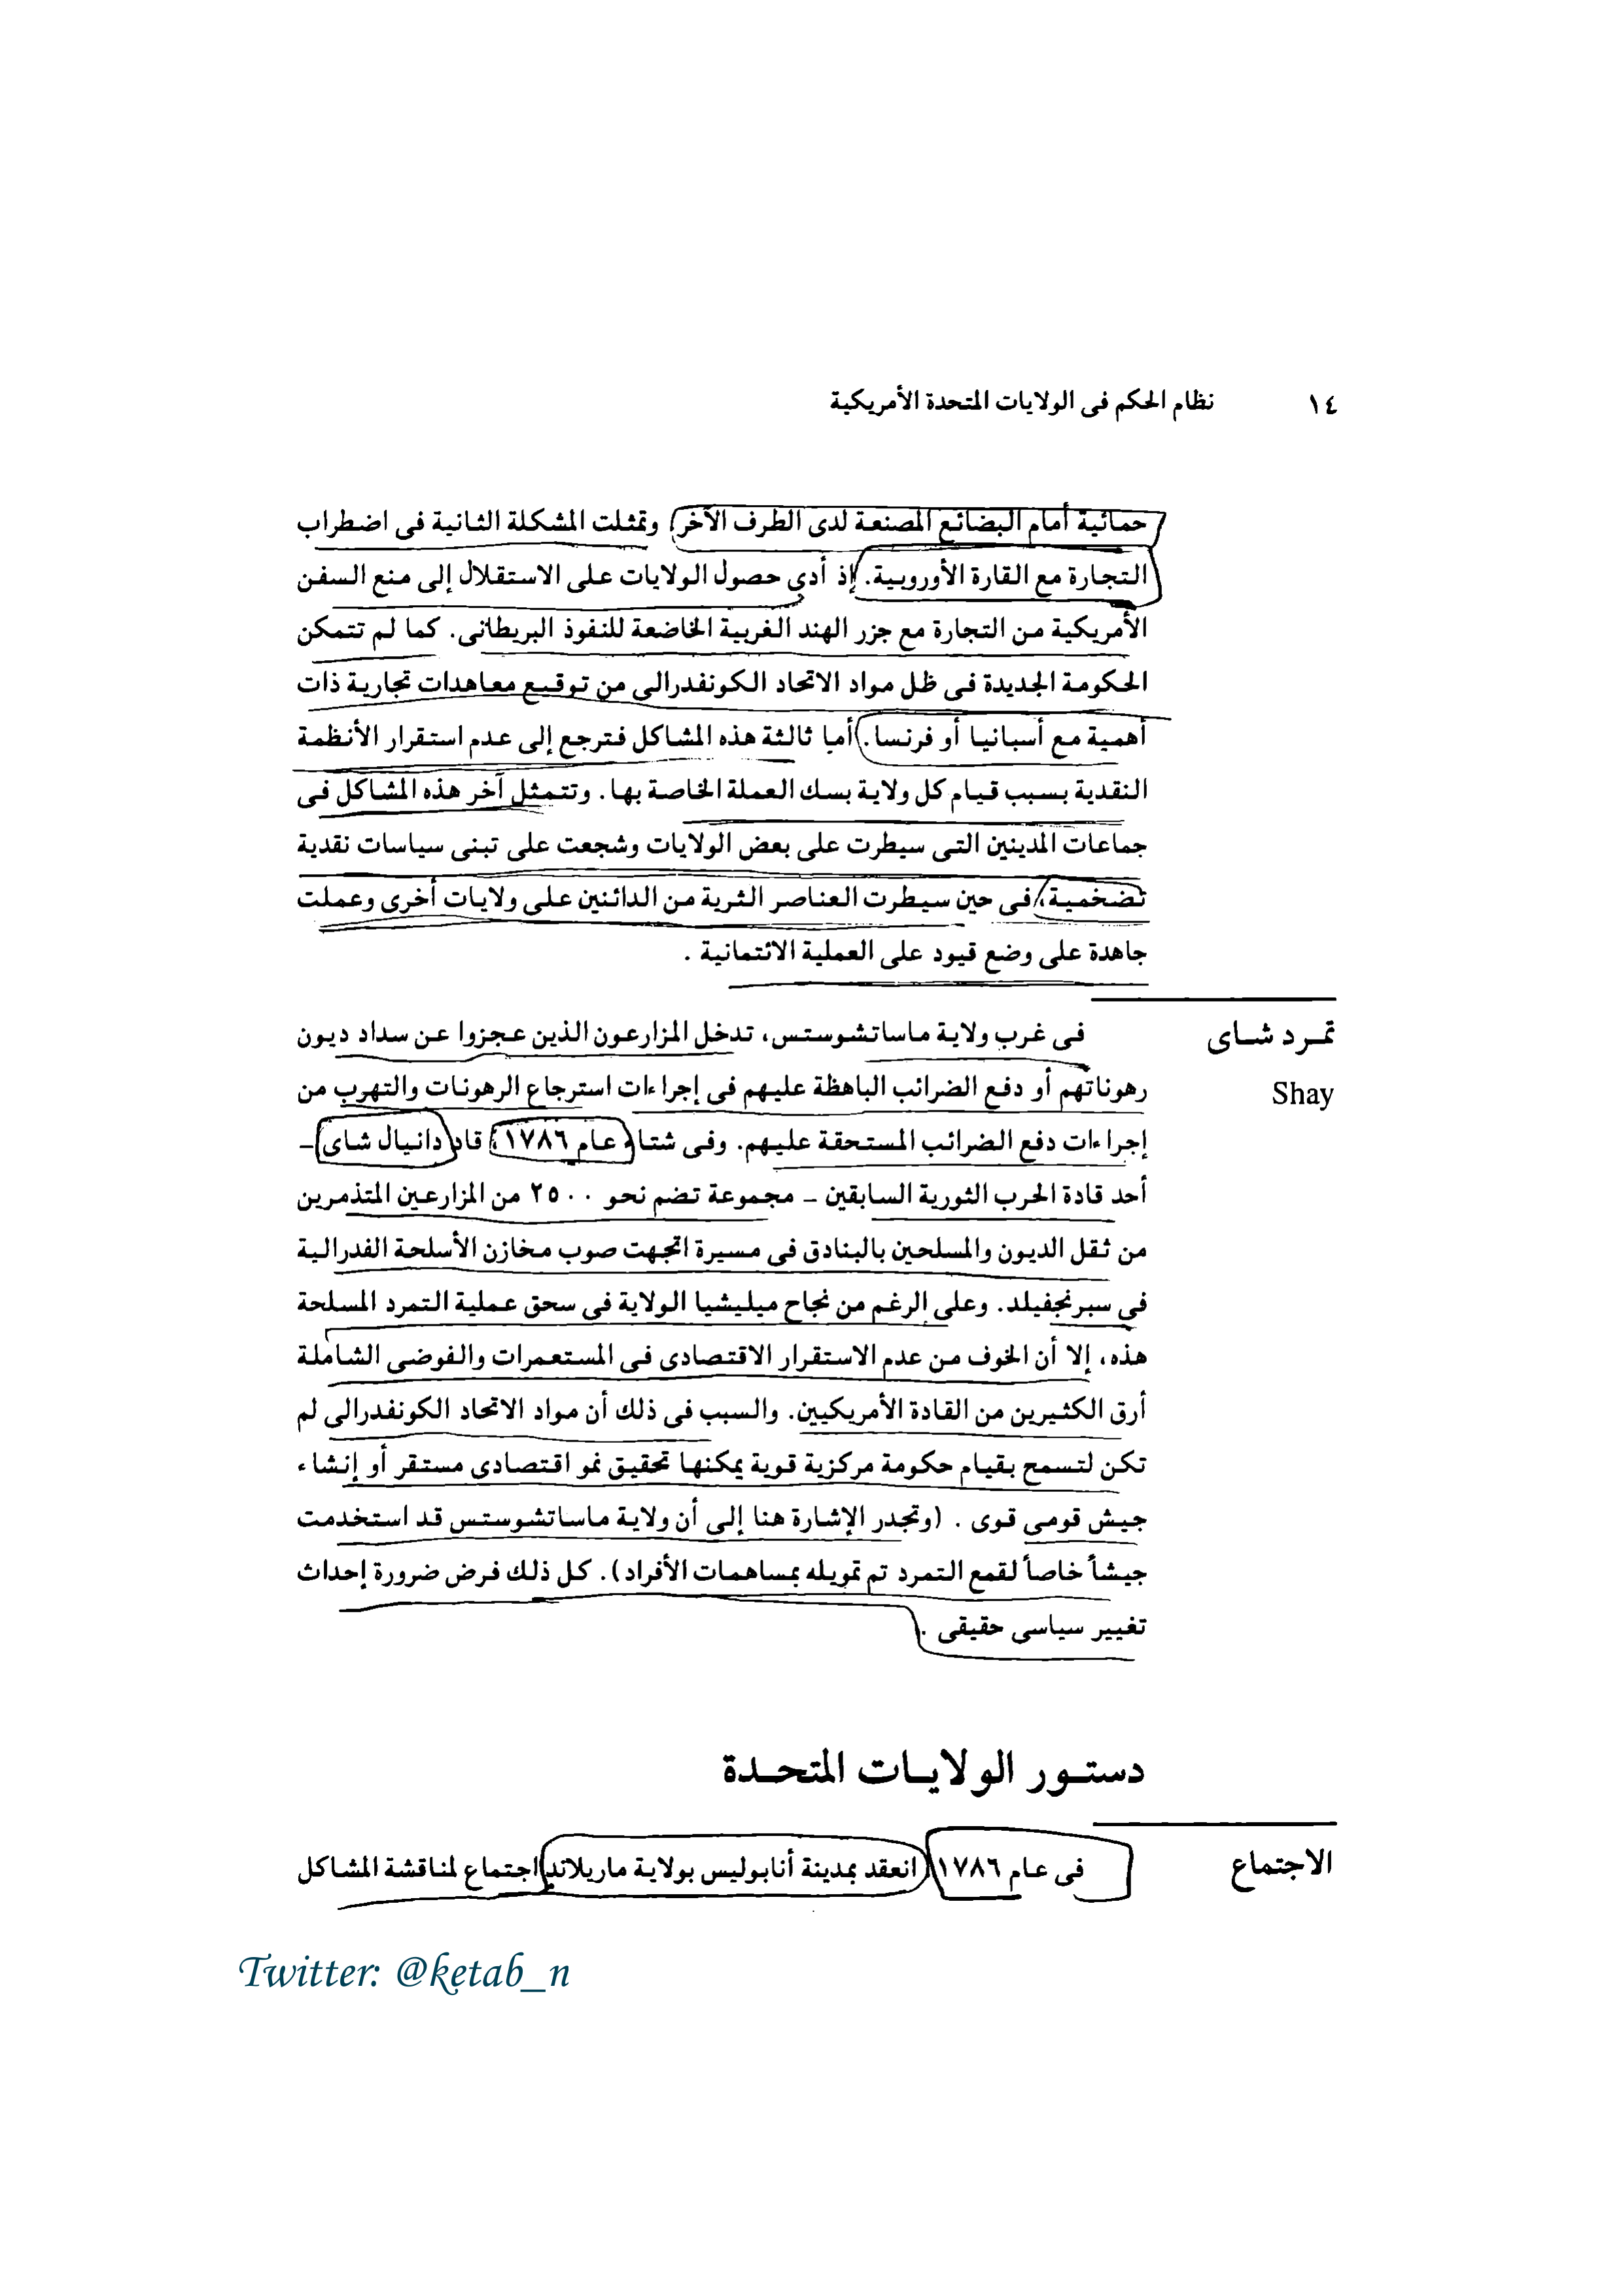 ١٤ نظام الحكم فى الولايات المتحدة الأمريكية
حمائية أمام البضائع المصنعة لدى الطرف الآخر، وتمثلت المشكلة الثانية فى اضطراب
التجارة مع القارة الأوروبية. إذ أدى حصول الولايات على الاستقلال إلى منع السفن
الأمريكية من التجارة مع جزر الهند الغربية الخاضعة للنفوذ البريطانى. كما لم تتمكن
الحكومة الجديدة فى ظل مواد الاتحاد الكونفدرالى من توقيع معاهدات تجارية ذات
أهمية مع أسبانيا أو فرنسا. أما ثالثة هذه المشاكل فترجع إلى عدم استقرار الأنظمة
النقدية بسبب قيام كل ولاية بسك العملة الخاصة بها. وتتمثل آخر هذه المشاكل فى
جماعات المدينين التى سيطرت على بعض الولايات وشجعت على تبنى سياسات نقدية
تضخمية، فى حين سيطرت العناصر الثرية من الدائنين على ولايات أخرى وعملت
جاهدة على وضع قيود على العملية الائتمانية .
تمرد شاى
Shay
فى غرب ولاية ماساتشوستس، تدخل المزارعون الذين عجزوا عن سداد ديون
رهوناتهم أو دفع الضرائب الباهظة عليهم فى إجراءات استرجاع الرهونات والتهرب من
إجراءات دفع الضرائب المستحقة عليهم. وفى شتاء عام ١٧٨٦، قاد دانيال شاى –
أحد قادة الحرب الثورية السابقين – مجموعة تضم نحو ٢٥٠٠ من المزارعين المتذمرين
من ثقل الديون والمسلحين بالبنادق فى مسيرة اتجهت صوب مخازن الأسلحة الفدرالية
فى سبرنجفيلد. وعلى الرغم من نجاح ميليشيا الولاية فى سحق عملية التمرد المسلحة
هذه، إلا أن الخوف من عدم الاستقرار الاقتصادى فى المستعمرات والفوضى الشاملة
أرق الكثيرين من القادة الأمريكيين. والسبب فى ذلك أن مواد الاتحاد الكونفدرالى لم
تكن لتسمح بقيام حكومة مركزية قوية يمكنها تحقيق نمو اقتصادى مستقر أو إنشاء
جيش قومى قوى . (وتجدر الإشارة هنا إلى أن ولاية ماساتشوستس قد استخدمت
جيشاً خاصاً لقمع التمرد تم تمويله بمساهمات الأفراد). كل ذلك فرض ضرورة إحداث
تغيير سياسى حقيقى .
دستور الولايات المتحدة
الاجتماع
فى عام ١٧٨٦، انعقد بمدينة أنابوليس بولاية ماريلاند اجتماع لمناقشة المشاكل
Twitter: @ketab_n